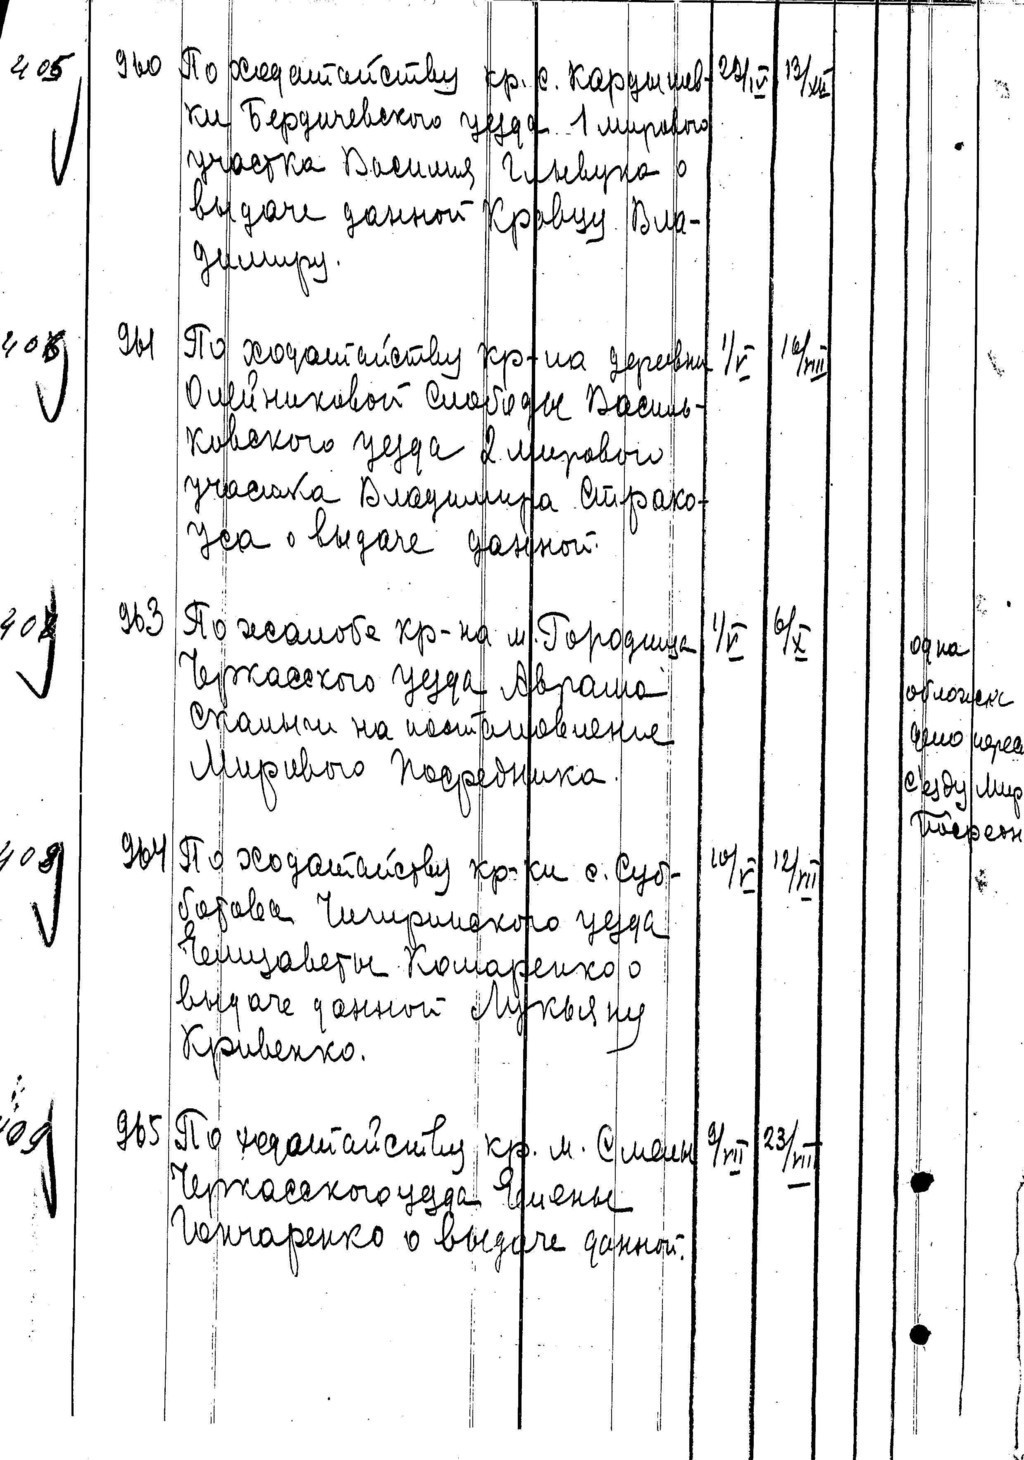 405 960 По ходатайству кр. с. Кардышев- 29/IV 13/XII
ки Бердичевского уезда 1 мирового
участка Василия о
выдаче данной Кравцу Вла-
димиру.
406 961 По ходатайству кр-на деревни 1/V 16/VIII
Олейниковой Слободы Василь-
ковского уезда 2 мирового
участка Владимира Страко-
уса о выдаче данной.
407 963 По жалобе кр-на м. Городища 1/V 6/X
Черкасского уезда Аврама
на постановление
Мирового Посредника.
одна
обложка
дело перед
съезду Мир
Посредн
408 964 По ходатайству кр-ки с. Суб- 10/V 12/VII
ботова Чигиринского уезда
Елизаветы Комаренко о
выдаче данной Лукьяну
Кривенко.
409 965 По ходатайству кр. м. Смелы 9/VII 23/VIII
Черкасского уезда Елены
Гончаренко о выдаче данной.